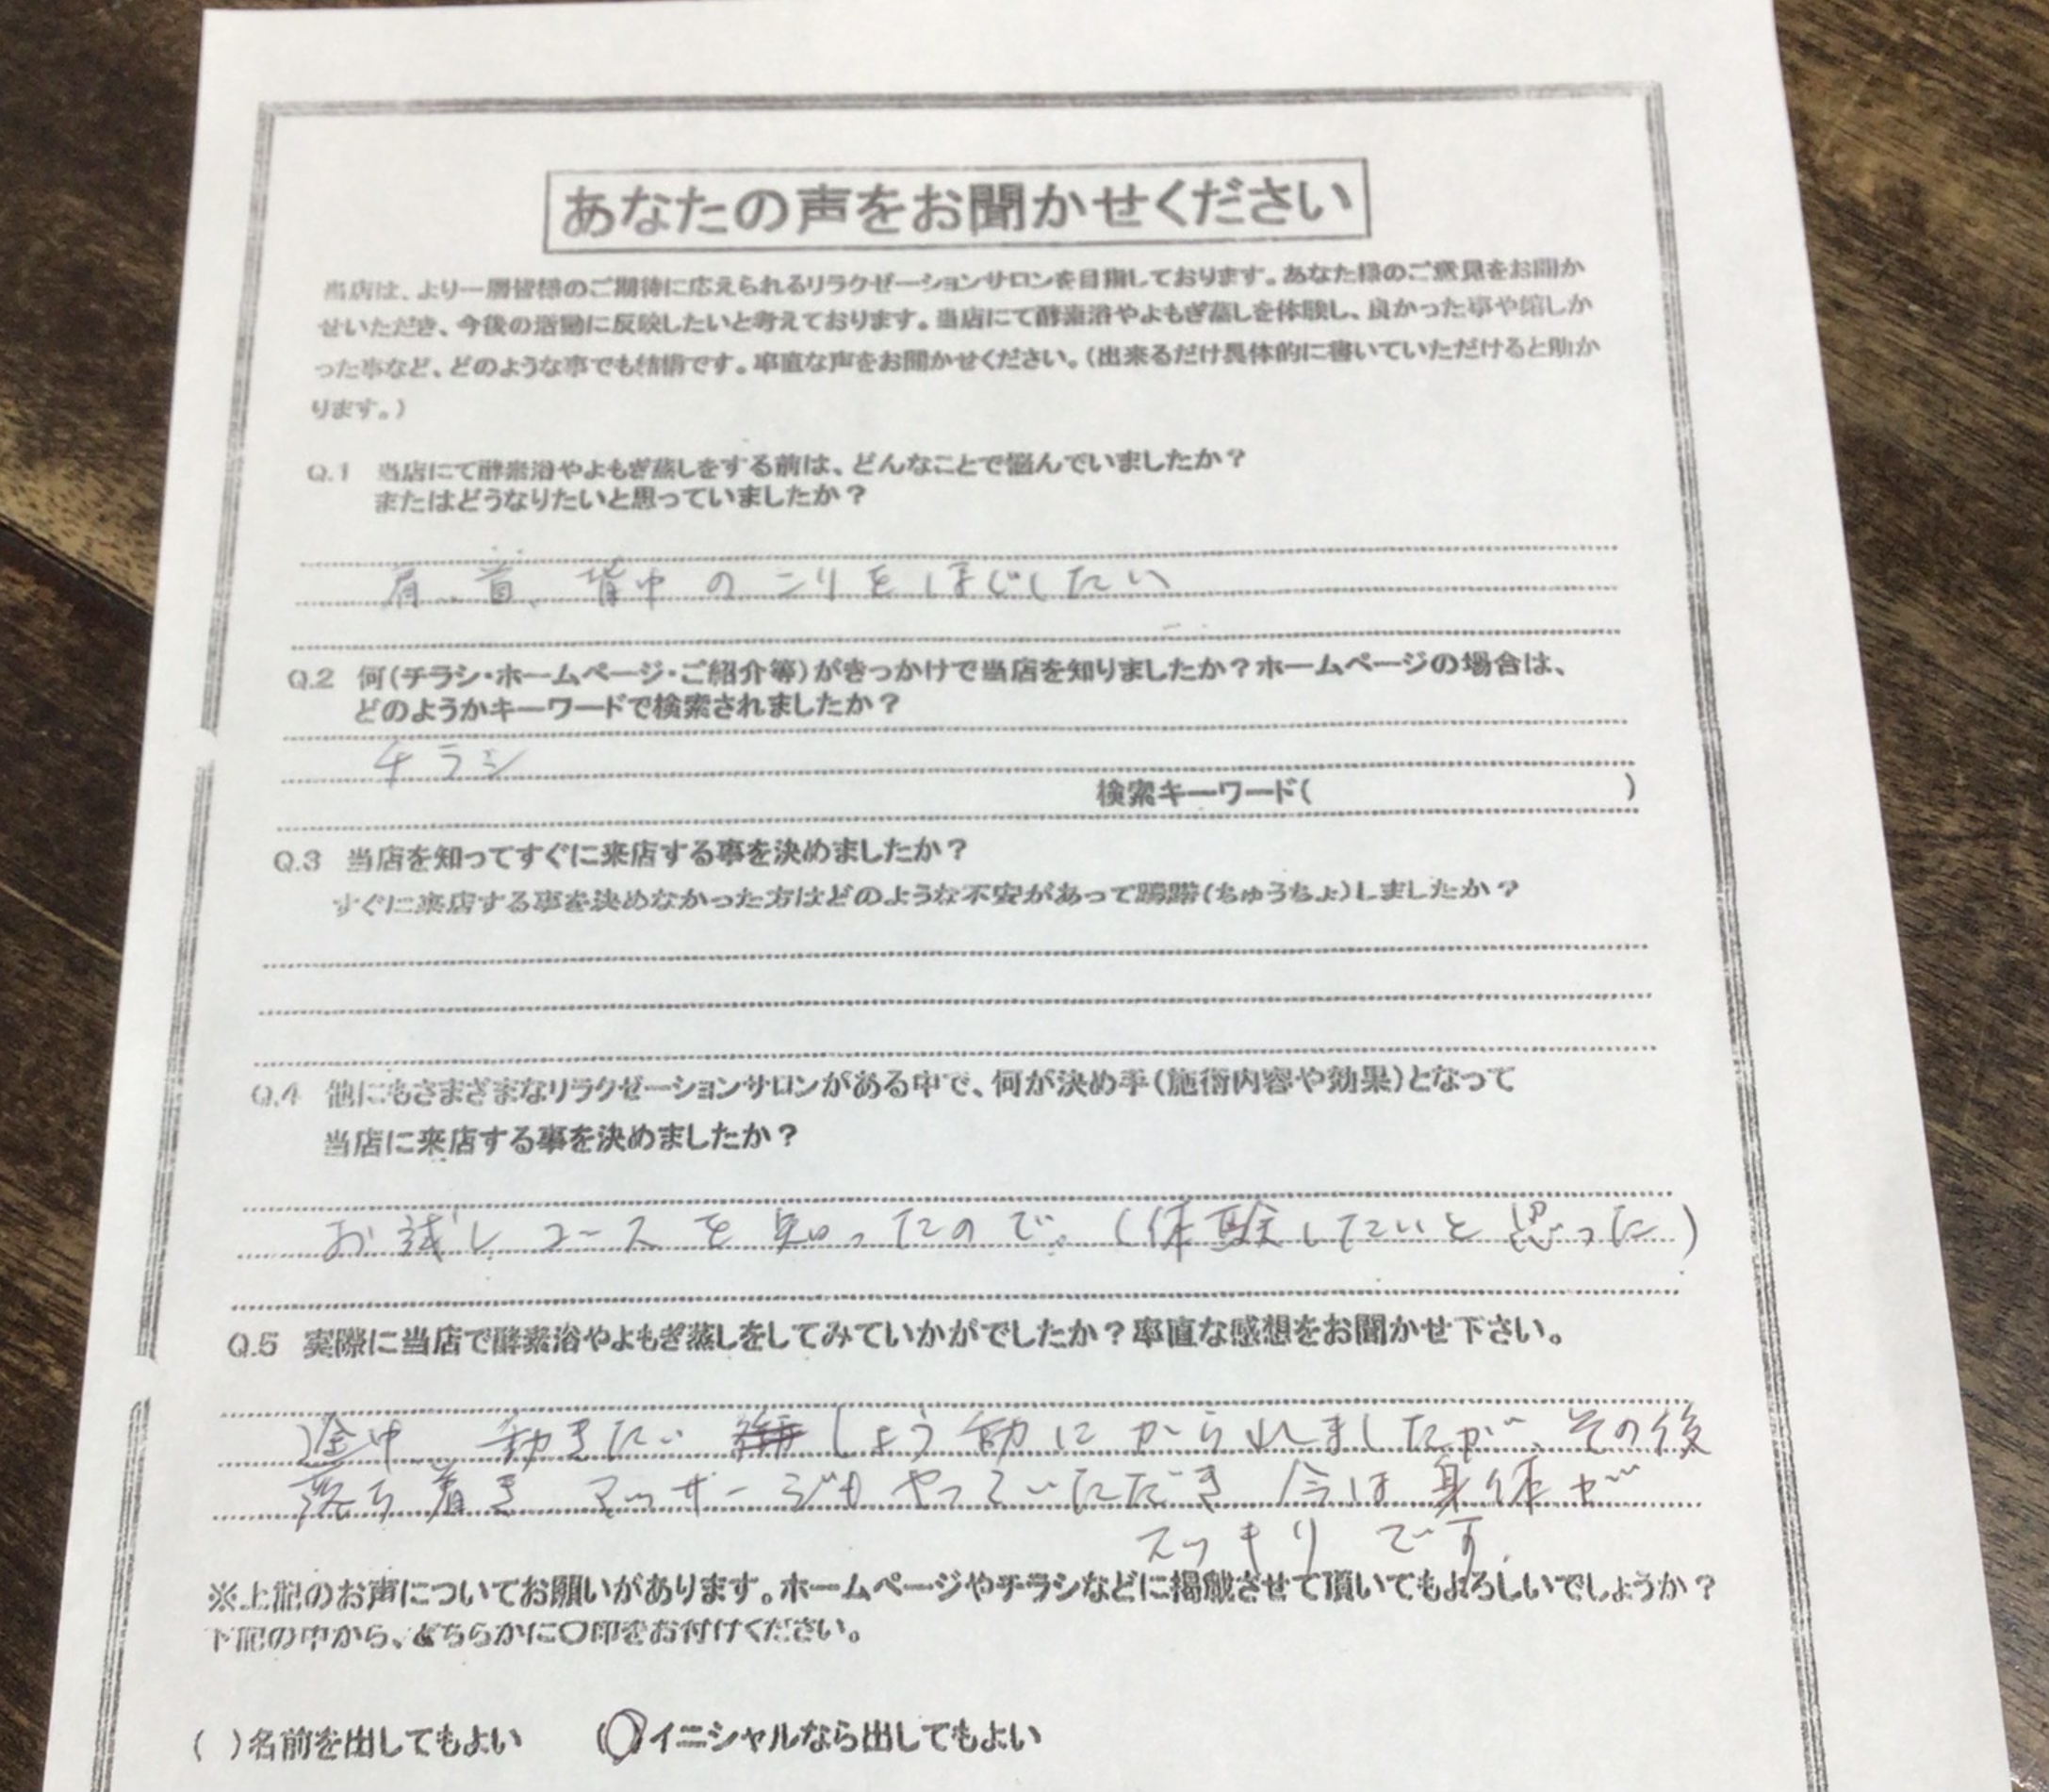 あなたの声をお聞かせください
当店は、より一層皆様のご期待に応えられるリラクゼーションサロンを目指しております。あなた様のご意見をお聞か
せいただき、今後の活動に反映したいと考えております。当店にて酵素浴やよもぎ蒸しを体験し、良かった事や嬉しか
った事など、どのような事でも結構です。率直な声をお聞かせください。(出来るだけ具体的に書いていただけると助か
ります。)
Q.1 当店にて酵素浴やよもぎ蒸しをする前は、どんなことで悩んでいましたか?
またはどうなりたいと思っていましたか?
肩、首、背中のこりをほぐしたい
Q.2 何(チラシ・ホームページ・ご紹介等)がきっかけで当店を知りましたか?ホームページの場合は、
どのようかキーワードで検索されましたか?
チラシ
検索キーワード( )
Q.3 当店を知ってすぐに来店する事を決めましたか?
すぐに来店する事を決めなかった方はどのような不安があって躊躇(ちゅうちょ)しましたか?
Q.4 他にもさまざまなリラクゼーションサロンがある中で、何が決め手(施術内容や効果)となって
当店に来店する事を決めましたか?
お試しコースを知ったので。(体験したいと思った)
Q.5 実際に当店で酵素浴やよもぎ蒸しをしてみていかがでしたか?率直な感想をお聞かせ下さい。
途中、動きたい しょう動にかられましたが、その後
落ち着き マッサージもやっていただき 今は身体が
スッキリです。
※上記のお声についてお願いがあります。ホームページやチラシなどに掲載させて頂いてもよろしいでしょうか?
下記の中から、どちらかに〇印をお付けください。
( )名前を出してもよい (〇)イニシャルなら出してもよい